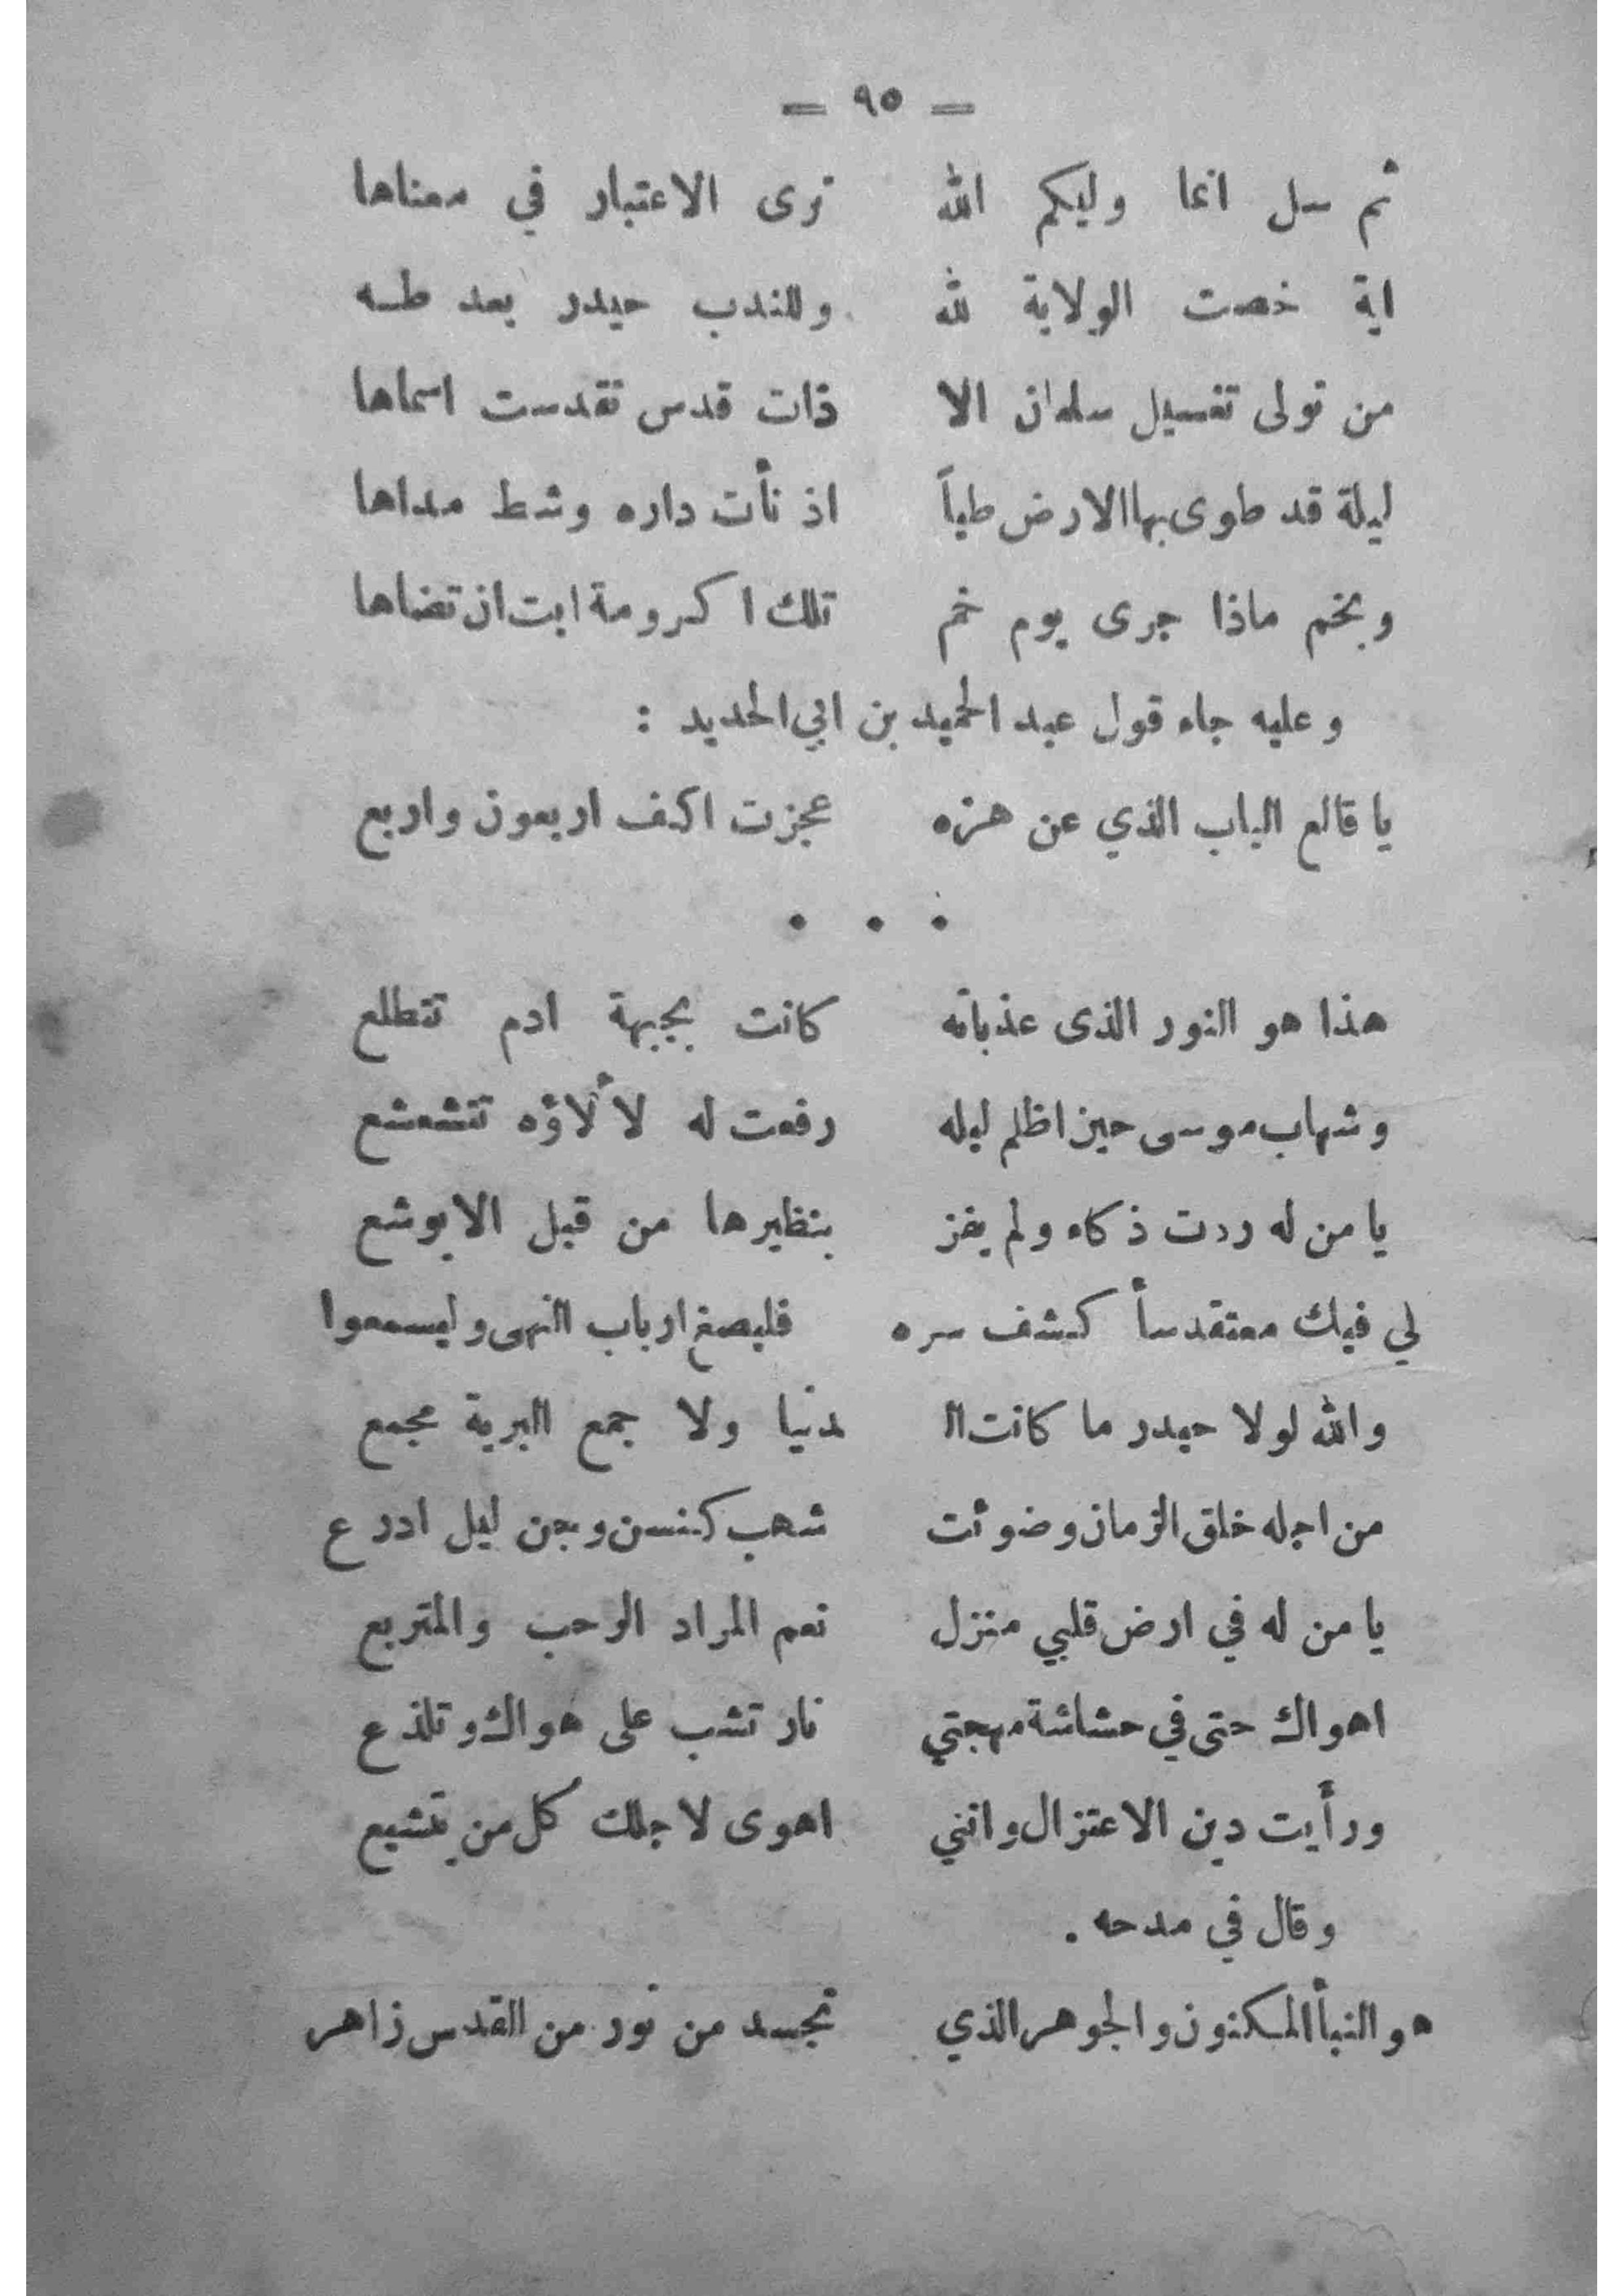 = ٩٥ =
ثم سل انما وليكم الله ترى الاعتبار في معناها
اية خصت الولاية لله وللندب حيدر بعد طه
من تولى تغسيل سلمان الا ذات قدس تقدست اسماها
ليلة قد طوى بها الارض طياً اذ نأت داره وشط مداها
وبخم ماذا جرى يوم خم تلك اكرومة ابت ان تضاها
وعليه جاء قول عبد الحميد بن ابي الحديد :
يا قالع الباب الذي عن هزه عجزت اكف اربعون واربع
. . .
هذا هو النور الذى عذباته كانت بجبهة ادم تتطلع
وشهاب موسى حين اظلم ليله رفعت له لألاؤه تتشعشع
يا من له ردت ذكاء ولم يفز بنظيرها من قبل الا يوشع
لي فيك معتقد سأكشف سره فليصغ ارباب النهى وليسمعوا
والله لولا حيدر ما كانت الـ ـدنيا ولا جمع البرية مجمع
من اجله خلق الزمان وضوئت شهب كنسن وجن ليل ادرع
يا من له في ارض قلبي منزل نعم المراد الرحب والمتربع
اهواك حتى في حشاشة مهجتي نار تشب على هواك وتلذع
ورأيت دين الاعتزال وانني اهوى لاجلك كل من يتشيع
وقال في مدحه .
هو النبأ المكنون والجوهر الذي تجسد من نور من القدس زاهر